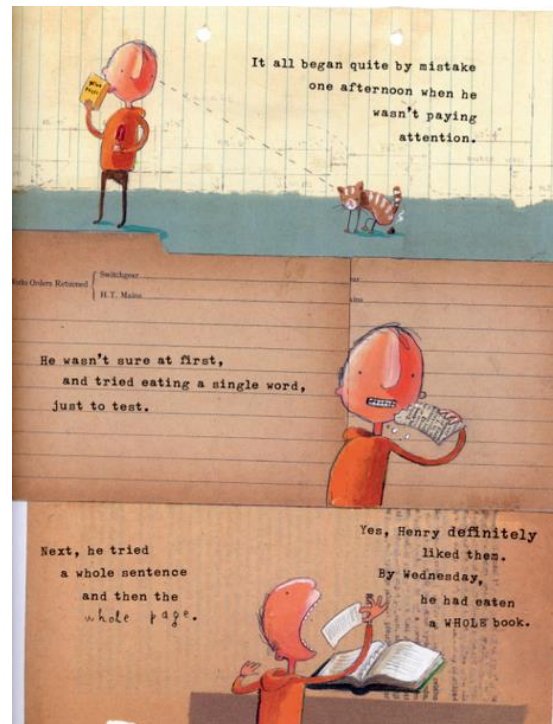 It all began quite by mistake
one afternoon when he
wasn't paying
attention.
Switchgear
Orders Returned
H.T. Mains
He wasn't sure at first,
and tried eating a single word,
just to test.
Next, he tried
a whole sentence
and then the
whole page.
Yes, Henry definitely
liked them.
By Wednesday,
he had eaten
a WHOLE book.